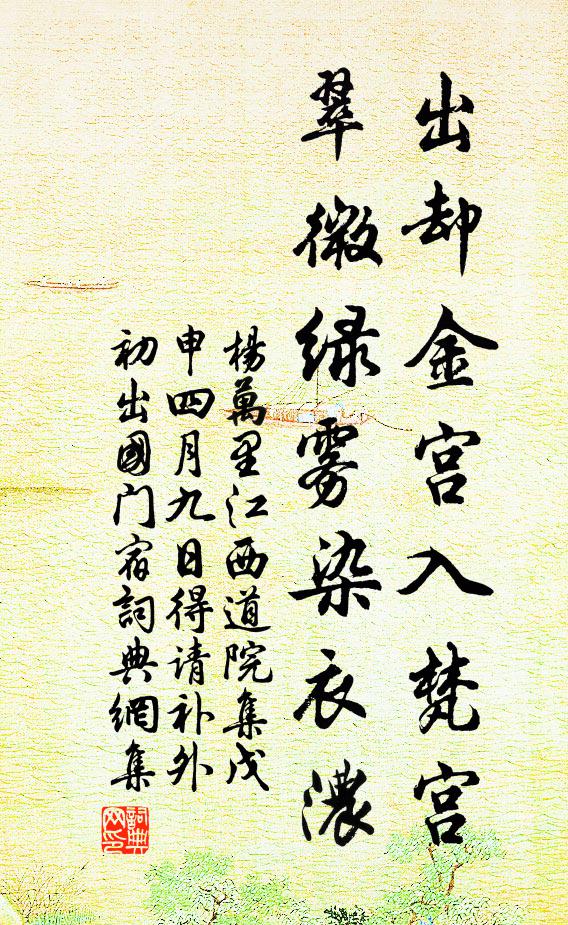 出却金宫入梵宫
翠微绿雾染衣濃
楊萬里江西道院集戊
申四月九日得请补外
初出國门宿詞典網集
詞典
网印